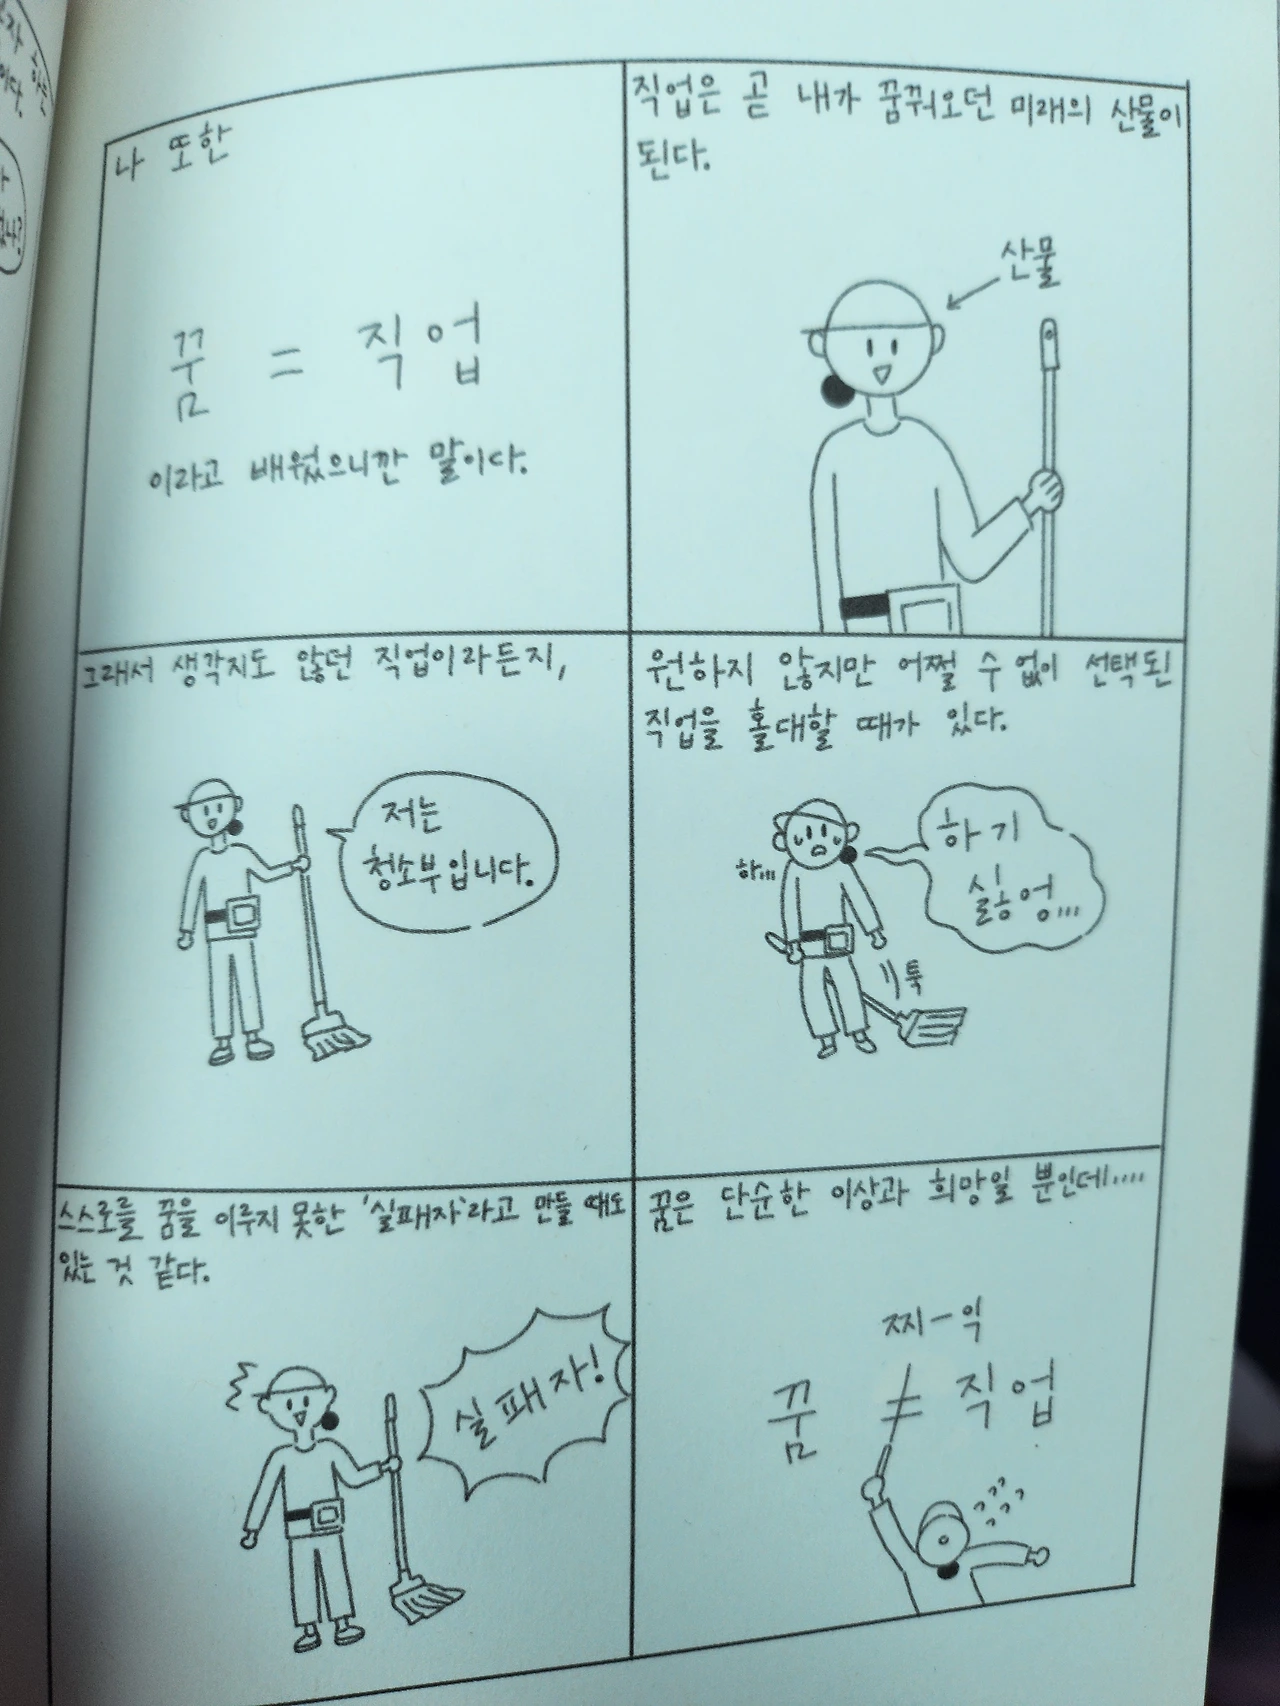 나 또한
꿈 = 직업
이라고 배웠으니깐 말이다.
직업은 곧 내가 꿈꿔오던 미래의 산물이
된다.
산물
그래서 생각지도 않던 직업이라든지,
저는
청소부입니다.
원하지 않지만 어쩔 수 없이 선택된
직업을 홀대할 때가 있다.
하...
하기
싫어엉...
툭
스스로를 꿈을 이루지 못한 '실패자'라고 만들 때도
있는 것 같다.
실패자!
꿈은 단순한 이상과 희망일 뿐인데.....
찌-익
꿈 ≠ 직업